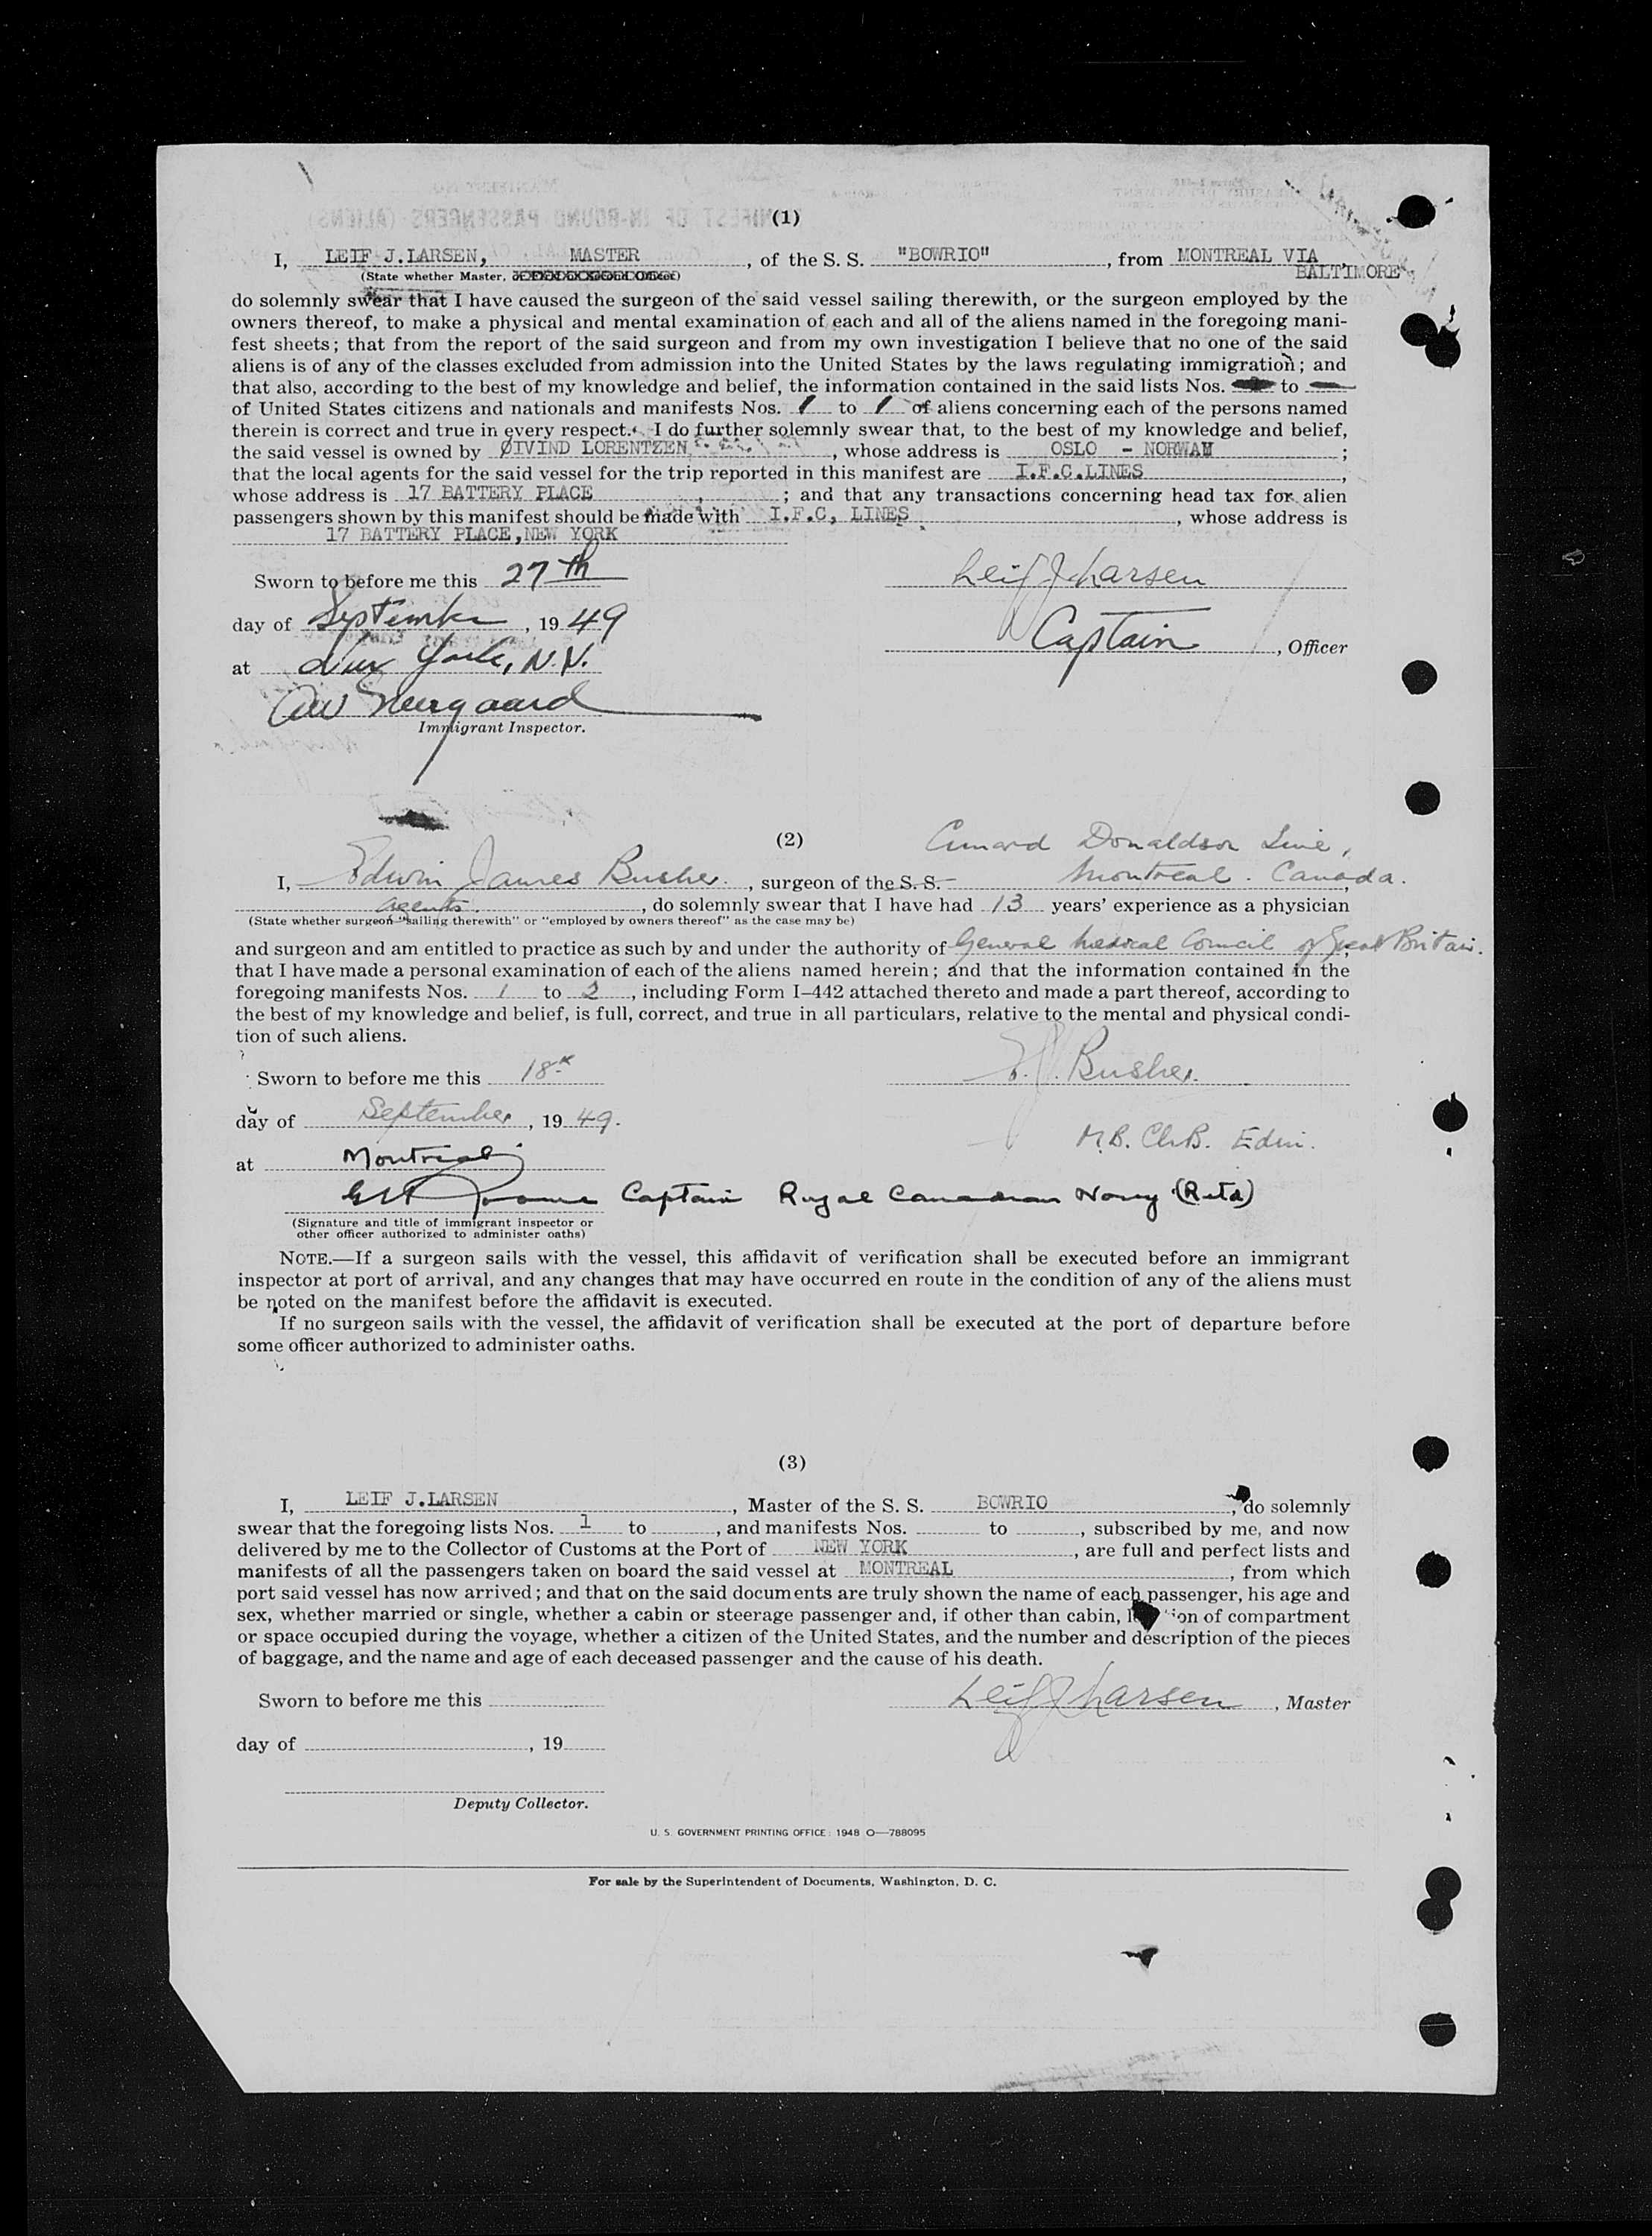 (1)
I, LEIF J.LARSEN, MASTER, of the S. S. "BOWRIO", from MONTREAL VIA
(State whether Master, BALTIMORE
do solemnly swear that I have caused the surgeon of the said vessel sailing therewith, or the surgeon employed by the
owners thereof, to make a physical and mental examination of each and all of the aliens named in the foregoing mani-
fest sheets; that from the report of the said surgeon and from my own investigation I believe that no one of the said
aliens is of any of the classes excluded from admission into the United States by the laws regulating immigration; and
that also, according to the best of my knowledge and belief, the information contained in the said lists Nos. to
of United States citizens and nationals and manifests Nos. 1 to 1 of aliens concerning each of the persons named
therein is correct and true in every respect. I do further solemnly swear that, to the best of my knowledge and belief,
the said vessel is owned by ØIVIND LORENTZEN, whose address is OSLO - NORWAY;
that the local agents for the said vessel for the trip reported in this manifest are I.F.C.LINES,
whose address is 17 BATTERY PLACE, ; and that any transactions concerning head tax for alien
passengers shown by this manifest should be made with I.F.C, LINES, whose address is
17 BATTERY PLACE,NEW YORK
Sworn to before me this 27th Leif J Larsen
day of September, 1949
Captain, Officer
at New York, N.Y.
Immigrant Inspector.
(2) Cunard Donaldson Line,
I, Edwin James Busher, surgeon of the S. S. Montreal. Canada.
agents, do solemnly swear that I have had 13 years' experience as a physician
(State whether surgeon "sailing therewith" or "employed by owners thereof" as the case may be)
and surgeon and am entitled to practice as such by and under the authority of General Medical Council of Great Britain.
that I have made a personal examination of each of the aliens named herein; and that the information contained in the
foregoing manifests Nos. 1 to 2, including Form I-442 attached thereto and made a part thereof, according to
the best of my knowledge and belief, is full, correct, and true in all particulars, relative to the mental and physical condi-
tion of such aliens.
Sworn to before me this 18th E.J. Busher.
day of September, 1949.
M.B. Ch.B. Edin.
at Montreal
Captain Royal Canadian Navy (Retd)
(Signature and title of immigrant inspector or
other officer authorized to administer oaths)
NOTE.—If a surgeon sails with the vessel, this affidavit of verification shall be executed before an immigrant
inspector at port of arrival, and any changes that may have occurred en route in the condition of any of the aliens must
be noted on the manifest before the affidavit is executed.
If no surgeon sails with the vessel, the affidavit of verification shall be executed at the port of departure before
some officer authorized to administer oaths.
(3)
I, LEIF J.LARSEN, Master of the S. S. BOWRIO, do solemnly
swear that the foregoing lists Nos. 1 to , and manifests Nos. to , subscribed by me, and now
delivered by me to the Collector of Customs at the Port of NEW YORK, are full and perfect lists and
manifests of all the passengers taken on board the said vessel at MONTREAL, from which
port said vessel has now arrived; and that on the said documents are truly shown the name of each passenger, his age and
sex, whether married or single, whether a cabin or steerage passenger and, if other than cabin, of compartment
or space occupied during the voyage, whether a citizen of the United States, and the number and description of the pieces
of baggage, and the name and age of each deceased passenger and the cause of his death.
Sworn to before me this Leif J Larsen, Master
day of , 19
Deputy Collector.
U. S. GOVERNMENT PRINTING OFFICE: 1948 O—788095
For sale by the Superintendent of Documents, Washington, D. C.